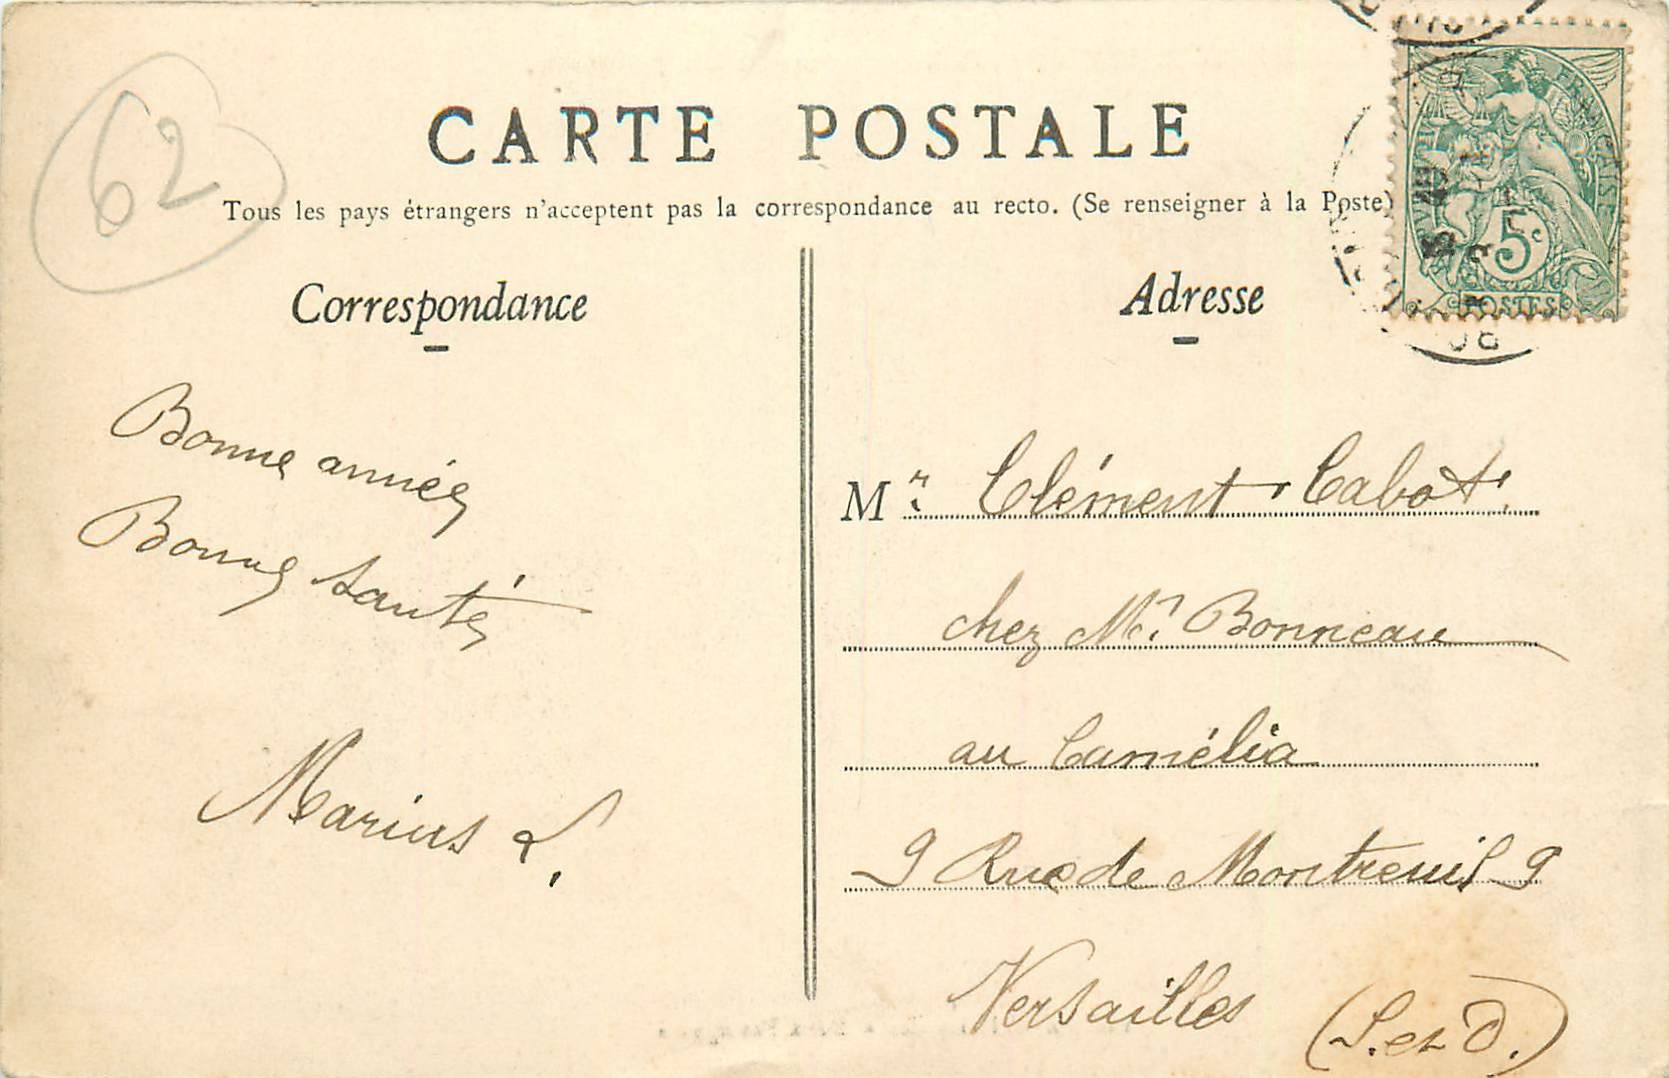 62
CARTE POSTALE
Tous les pays étrangers n'acceptent pas la correspondance au recto. (Se renseigner à la Poste)
Correspondance
Adresse
RÉPUBLIQUE FRANÇAISE
5c
POSTES
08
Bonne année
Bonne santé
Marius L.
Mr. Clément Cabot.
chez Mr. Bonneau
au Camélia
9 Rue de Montreuil 9
Versailles
(S. et O.)